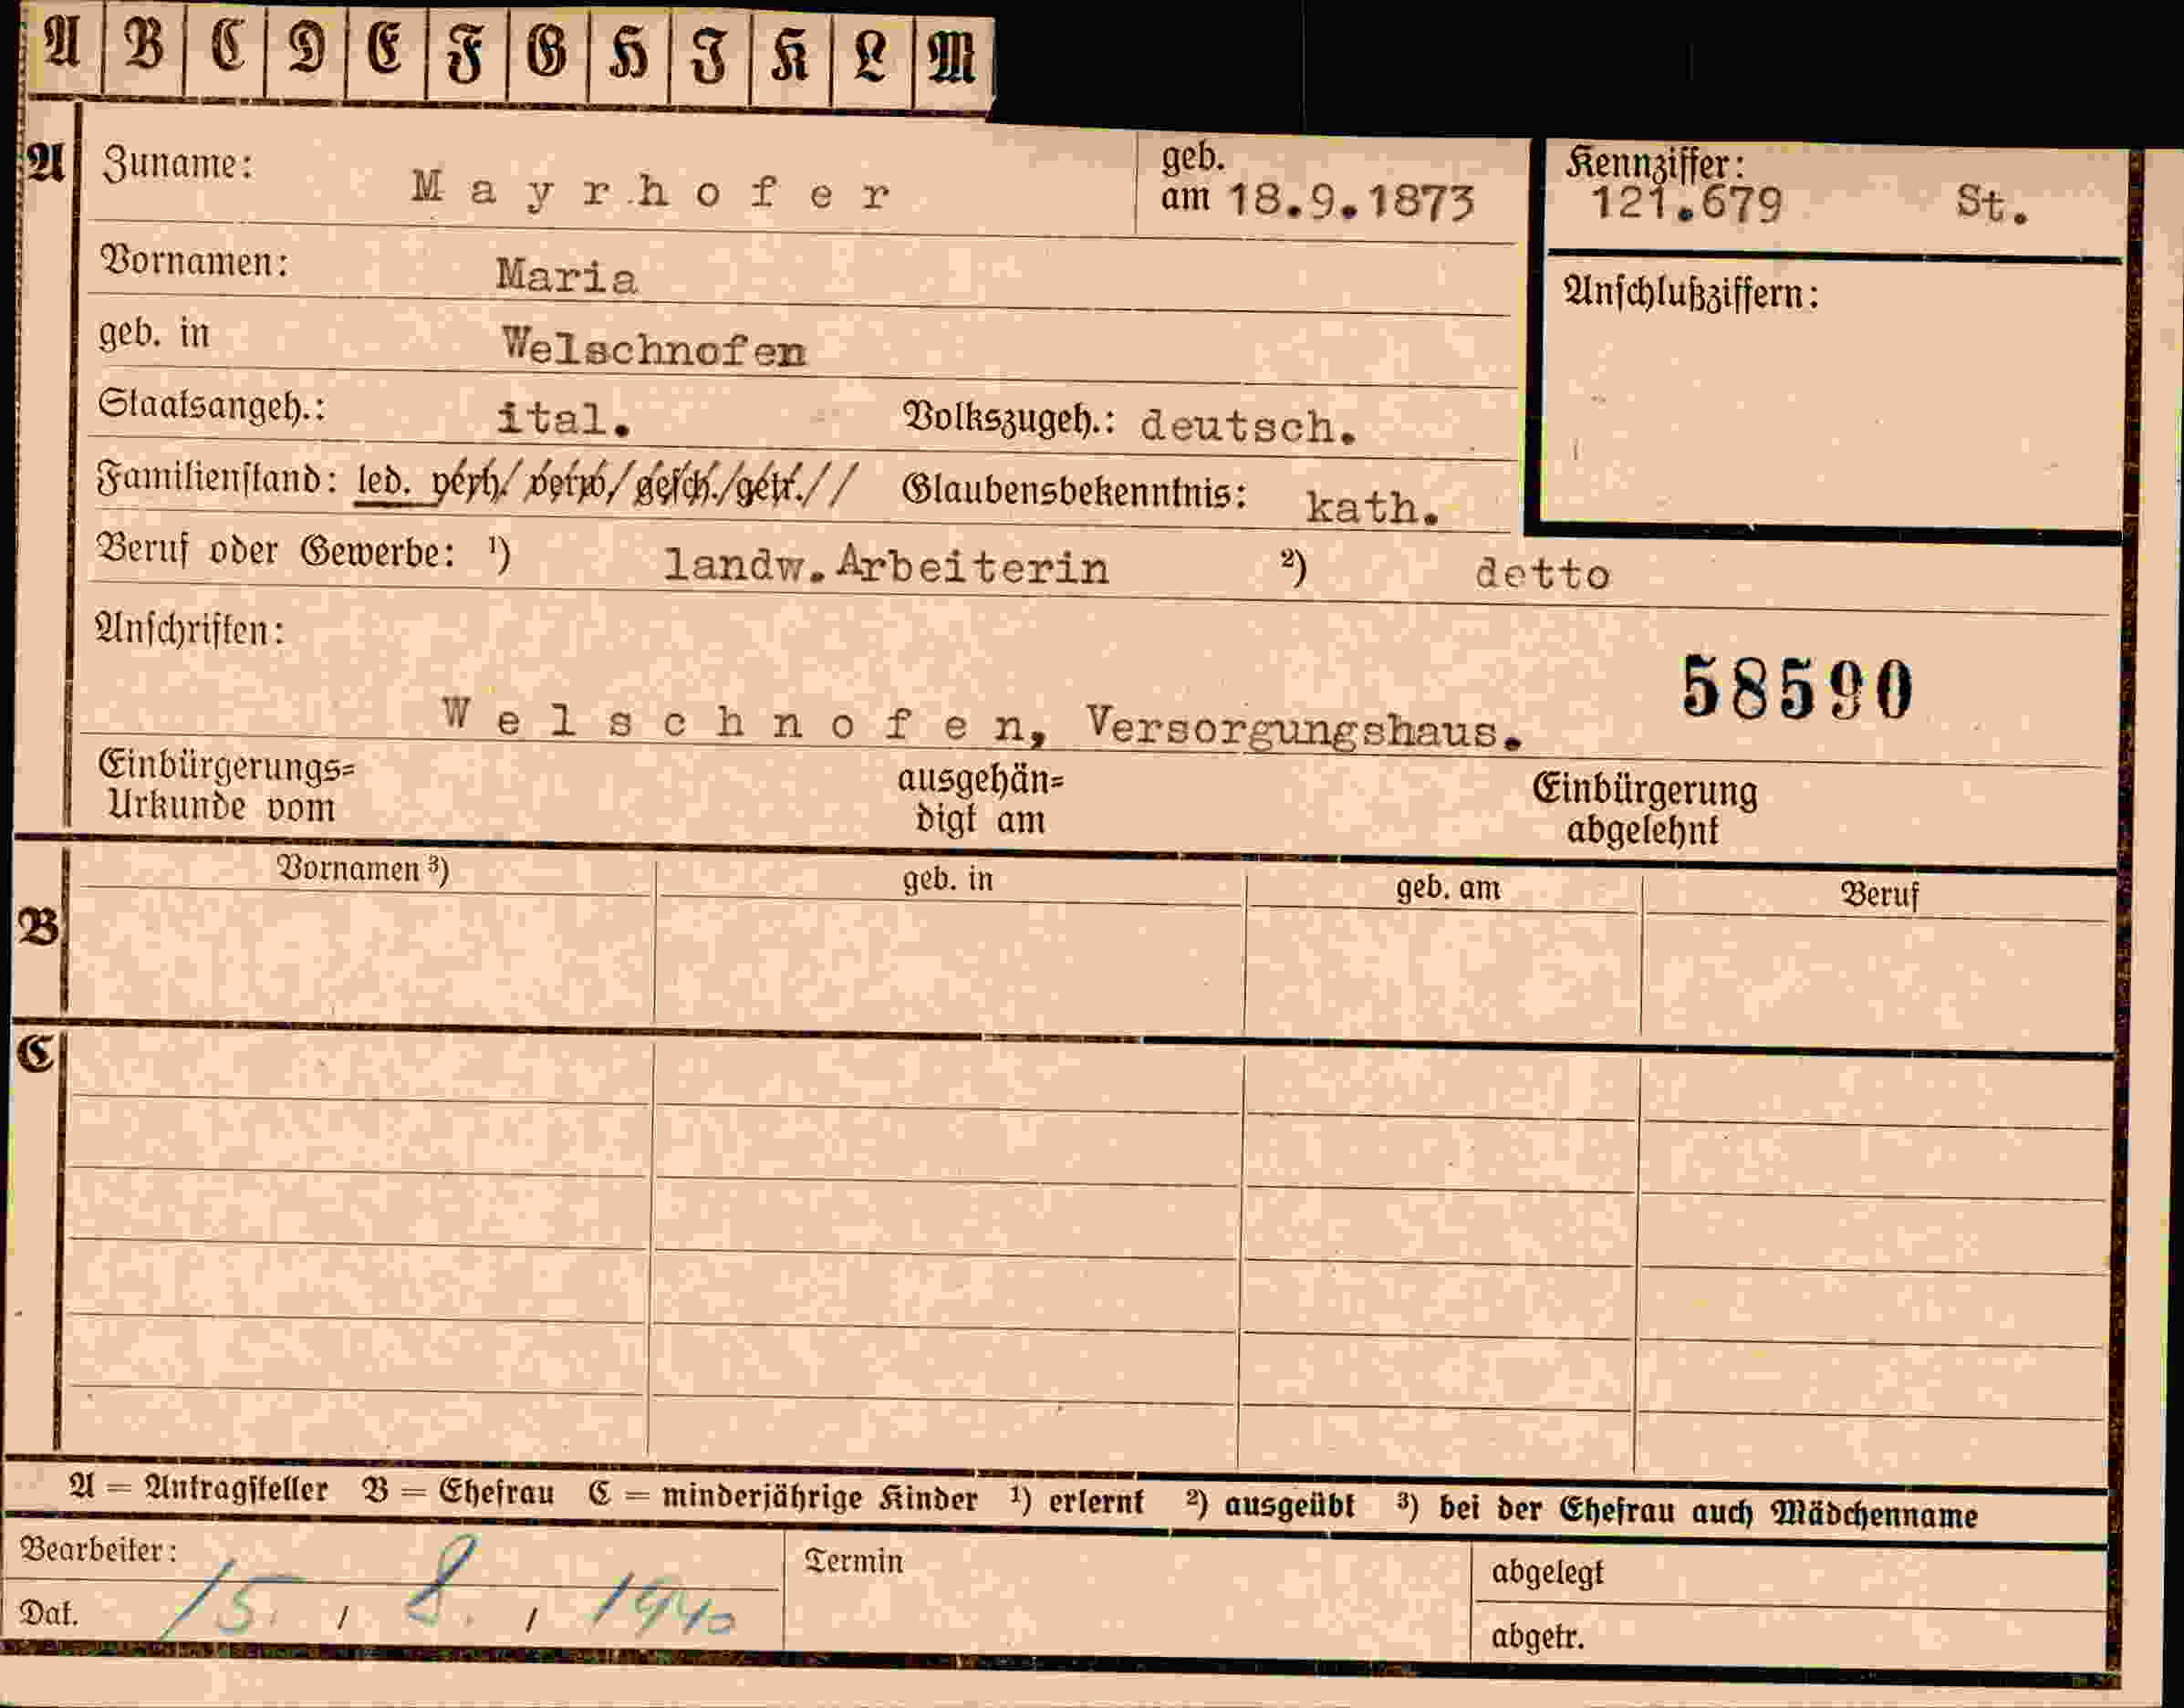 A B C D E F G H I K L M
A Zuname: Mayrhofer geb. am 18.9.1873 Kennziffer: 121.679 St.
Vornamen: Maria
Anschlußziffern:
geb. in Welschnofen
Staatsangeh.: ital. Volkszugeh.: deutsch.
Familienstand: led. verh./verw/gesch./getr.// Glaubensbekenntnis: kath.
Beruf oder Gewerbe: ¹) landw.Arbeiterin ²) detto
Anschriften:
58590
Welschnofen, Versorgungshaus.
Einbürgerungs= ausgehän= Einbürgerung
Urkunde vom digt am abgelehnt
Vornamen ³) geb. in geb. am Beruf
B
C
A = Antragsteller B = Ehefrau C = minderjährige Kinder ¹) erlernt ²) ausgeübt ³) bei der Ehefrau auch Mädchenname
Bearbeiter: Termin abgelegt
Dat. 15. / 8. / 1940
abgetr.